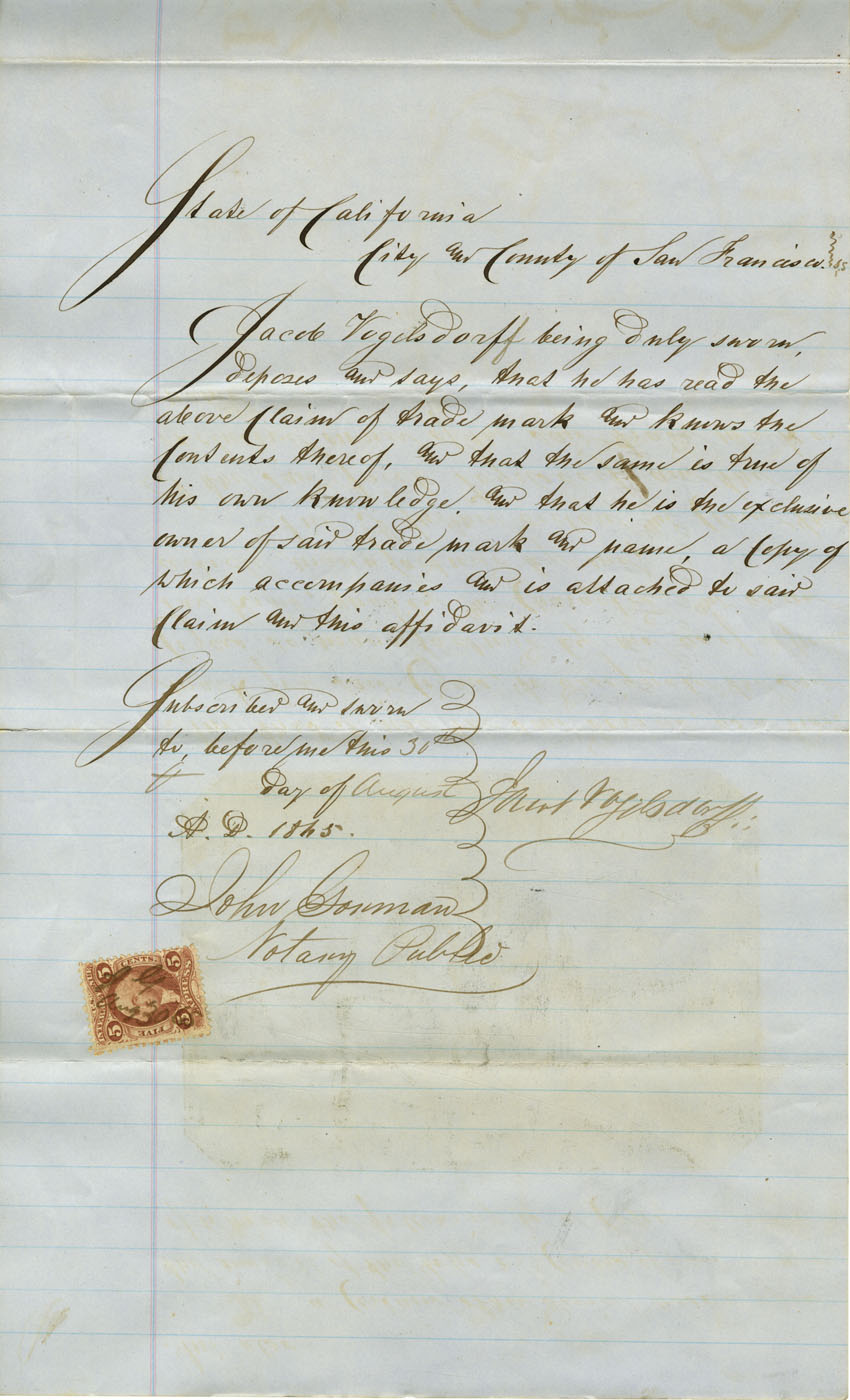 State of California
City and County of San Francisco. ss
Jacob Vogelsdorff being duly sworn,
deposes and says, that he has read the
above Claim of trade mark and knows the
Contents thereof, and that the same is true of
his own knowledge. and that he is the exclusive
owner of said trade mark and name, a Copy of
which accompanies and is attached to said
Claim and this affidavit.
Subscribed and sworn
to, before me this 30th
day of August
A. D. 1865.
Jacob Vogelsdorff
John Gorman
Notary Public
5 CENTS. 5
EXPRESS
5 FIVE 5